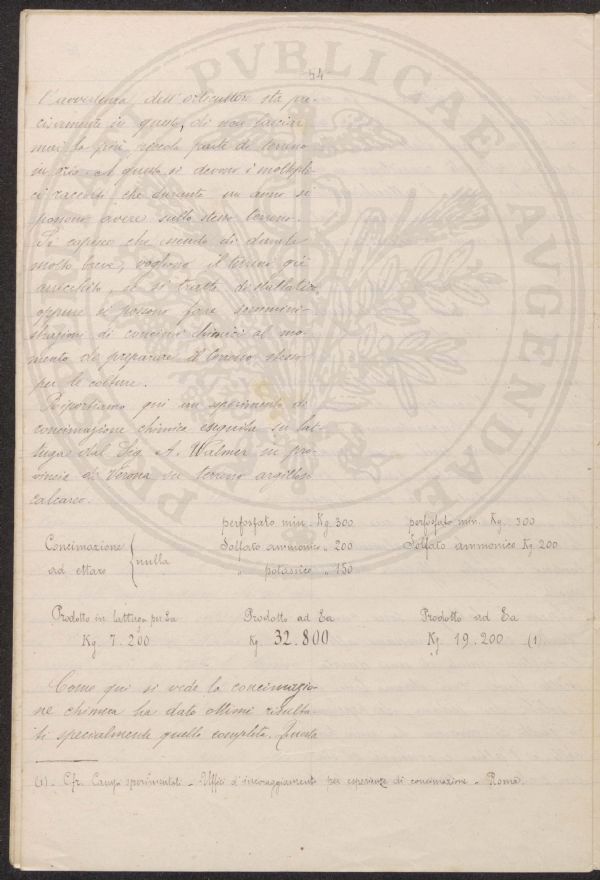 54
l'avvertenza dell'orticultore sta pre-
cisamente in questo, di non lasciar
mai la più piccola parte di terreno
in ozio. A questo si devono i moltepli-
ci raccolti che durante un anno si
possono avere sullo stesso terreno.
Si capisce che essendo di durata
molto breve, vogliono il terreno già
arricchito, se si tratta di stallatico,
oppure si possono fare sommini-
strazioni di concimi chimici al mo-
mento di preparare il terreno stesso
per le colture.
Riportiamo qui un esperimento di
concimazione chimica eseguita su lat-
tuga dal Sig. A. Walmer in pro-
vincia di Verona su terreno argilloso
calcareo.
Concimazione ad ettaro { nulla
perfosfato min. Kg. 300
Solfato ammonico „ 200
„ potassico „ 150
perfosfato min. Kg. 300
Solfato ammonico Kg. 200
Prodotto in lattuga per Ea
Kg. 7.200
Prodotto ad Ea
Kg. 32.800
Prodotto ad Ea
Kg. 19.200 (1
Come qui si vede la concimazio-
ne chimica ha dato ottimi risulta-
ti specialmente quella completa. Questa
(1) - Cfr. Campi sperimentali - Uffici d'incoraggiamento per esperienze di concimazione - Roma.
PVBLICAE AVGENDAE